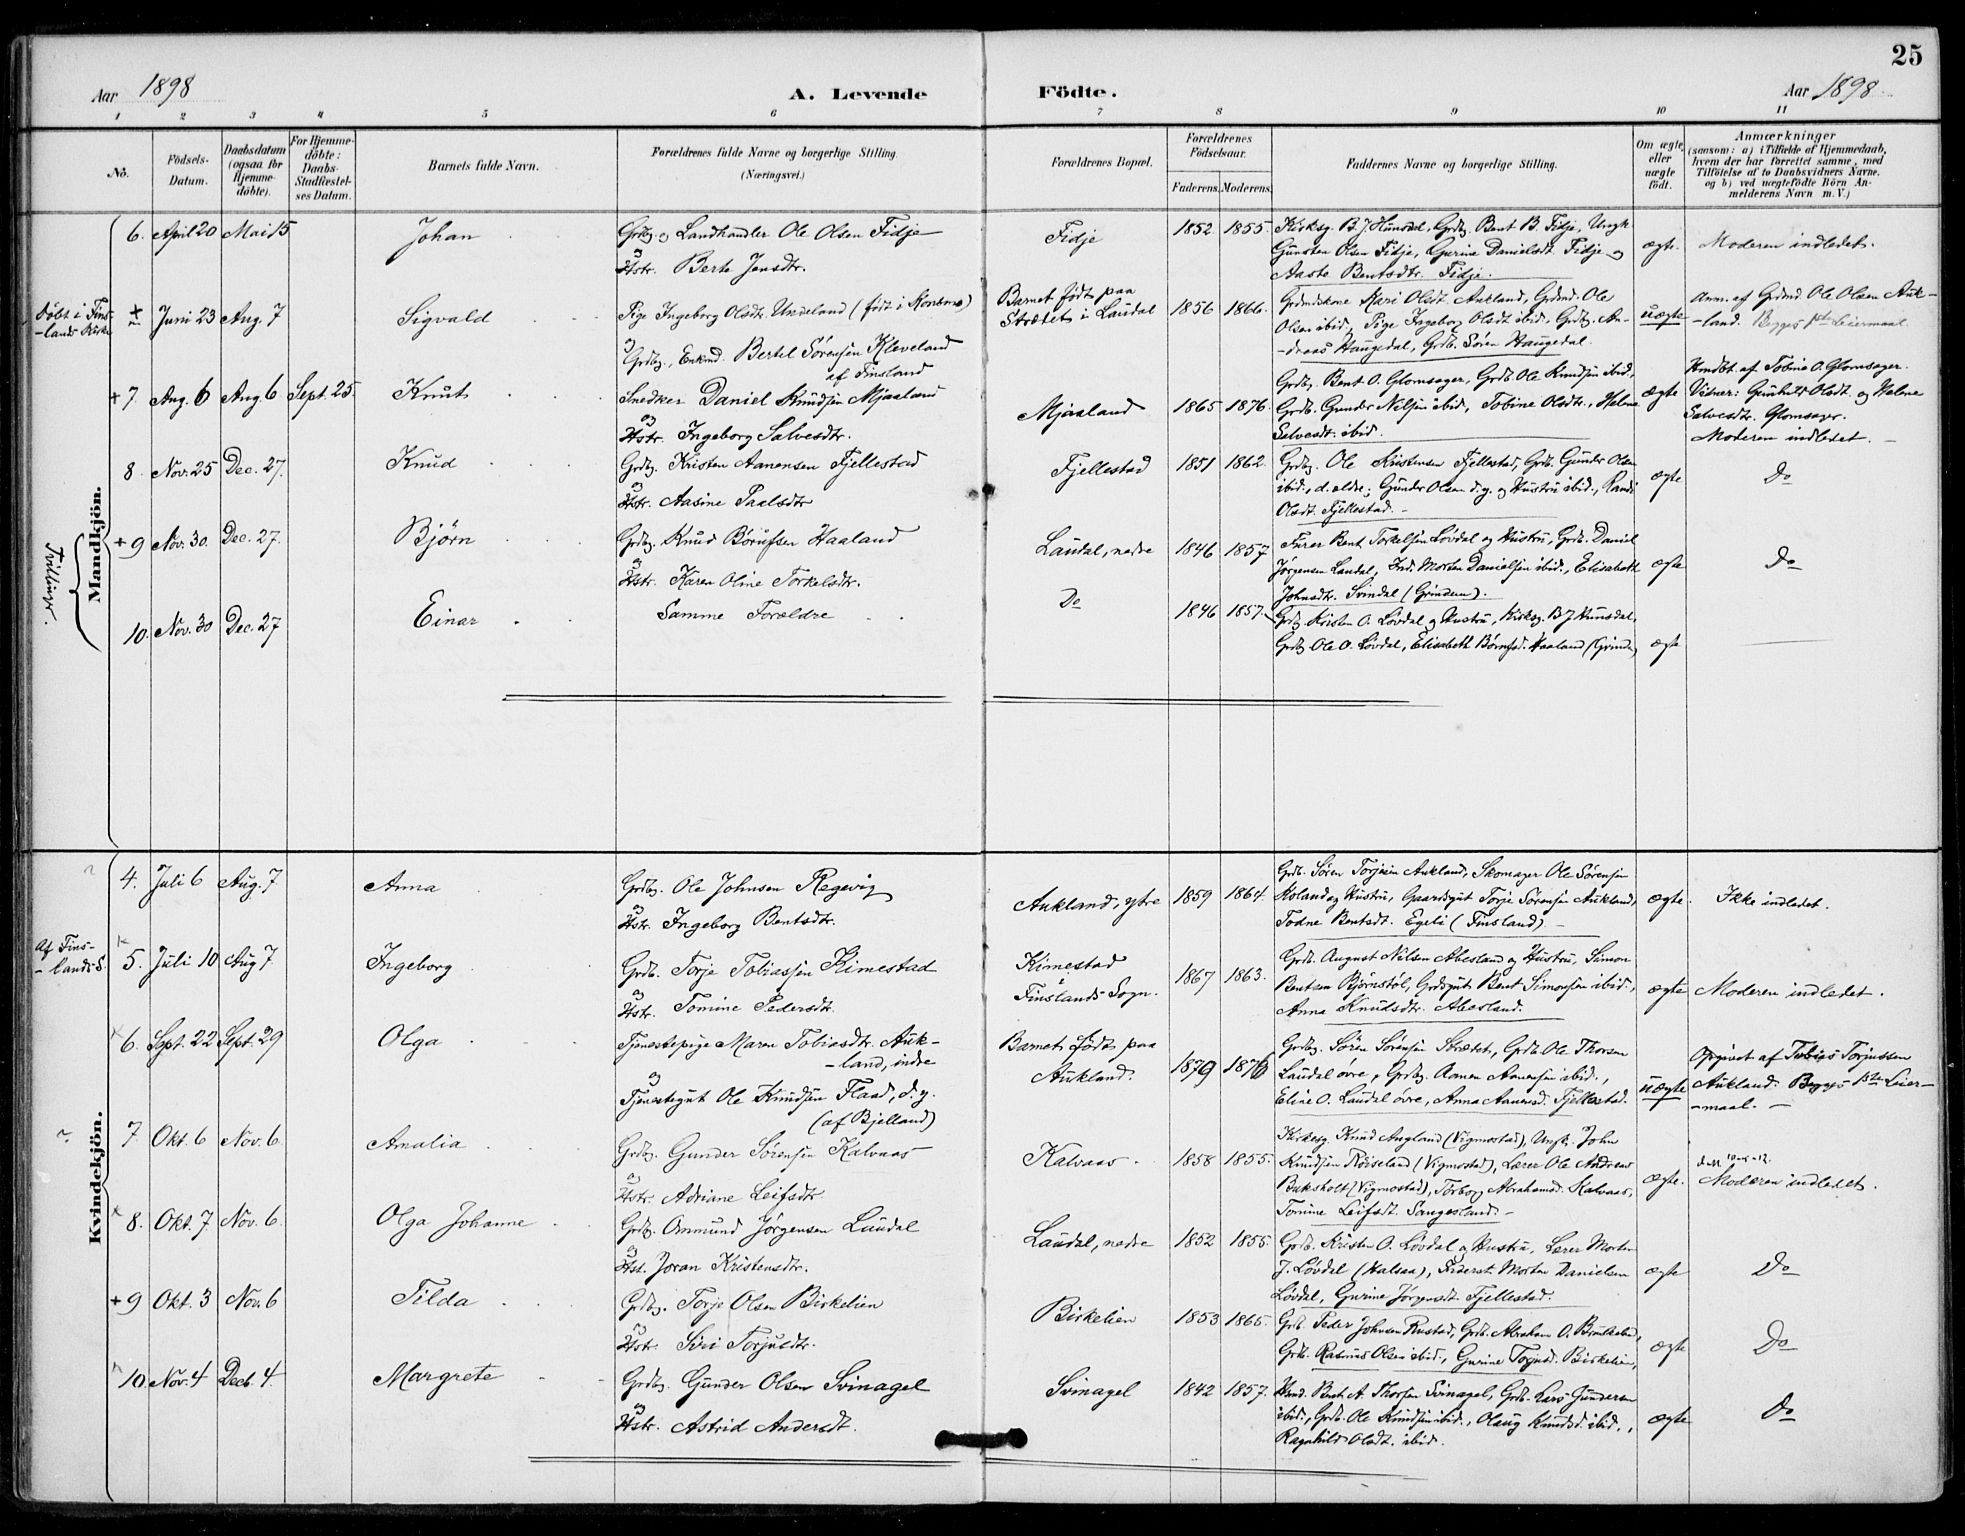 25
Aar 1898
A. Levende Födte.
Aar 1898
1 2 3 4 5 6 7 8 9 10 11
No.
Födsels-
Datum.
Daabsdatum
(ogsaa for
Hjemme-
döbte).
For Hjemme-
döbte:
Daabs-
Stadfæstel-
ses Datum.
Barnets fulde Navn.
Forældrenes fulde Navne og borgerlige Stilling.
(Næringsvei.)
Forældrenes Bopæl.
Forældrenes
Födselsaar.
Faderens. Moderens.
Faddernes Navne og borgerlige Stilling.
Om ægte
eller
uægte
födt.
Anmærkninger
(saasom: a) i Tilfælde af Hjemmedaab,
hvem der har forrettet samme, med
Tilföielse af to Daabsvidners Navne.
og b) ved uægtefödte Börn An-
melderens Navn m.V.)
Mandkjön.
6. April 20 Mai 15 Johan
Grdbg. og Landhandler Ole Olsen Fidje
og
Hstr. Berte Jensdtr.
Fidje 1852 1855.
Kirksg. B. J. Hunsdal, Grdbg. Bent B. Fidje, Ungk.
Gunsten Olsen Fidje, Gurine Danielsdt. Fidje og
Aaste Bentsdtr. Fidje.
ægte. Moderen indledet.
Døbt i Fins-
-lands Kirke
Juni 23 Aug. 7 Sigvald
Pige Ingeborg Olsdtr. Undeland (født i Konsmo)
og
Grdbg., Enkmd. Bertel Sørensen Kleveland
af Finsland
Barnet født paa
Strætet i Laudal
1856 1866.
Grdmdskone Kari Olsdt. Aukland, Grdmd. Ole
Olsen ibid., Pige Ingeborg Olsdt. ibid., Grdbg. An-
-dreas Haugedal, Grdb. Søren Haugedal.
uægte
Anm. af Grdmd. Ole Olsen Auk-
-land. Begges 1ste Leiermaal.
+ 7. Aug. 6 Aug. 6 Sept. 25. Knut
Snedker Daniel Knudsen Mjaaland
og
Hstr. Ingeborg Salvesdtr.
Mjaaland 1865 1876.
Grdbg. Bent O. Glomsager, Grdb. Ole Knudsen ibid.,
Grdb. Gunder Nilsen ibid., Tobine Olsdtr., Helene
Salvesdt. ibid.
ægte
Hmdbt. af Tobine O. Glomsager.
Vidner: Gunhild Olsdt. og Helene
Salvesdtr. Glomsager.
Moderen indledet. –
8. Nov. 25 Dec. 27. Knud
Grdbg. Kristen Aanensen Fjellestad
og
Hstr. Aasine Paalsdtr
Fjellestad 1851 1862.
Grdbg. Ole Kristensen Fjellestad, Grdb. Gunder Olsen
ibid., d. eldre; Gunder Olsen d. y. og Hustru ibid., Randi
Olsdt. Fjellestad. –
ægte Do
Tvillinger.
+ 9 Nov. 30. Dec. 27. Bjørn
Grdbg. Knud Børufsen Haaland
og
Hstr. Karen Oline Torkelsdtr.
Laudal, nedre 1846 1857
Furer Bent Torkelsen Løvdal og Hustru, Grdb. Daniel
Jørgensen Laudal, Inds. Morten Danielsen ibid., Elisabeth
Johnsdtr. Svindal (Grindem).
ægte Do
10. Nov. 30 Dec. 27 Einar
Samme Forældre
Do 1846 1857.
Grdbg. Kristen O. Løvdal og Hustru, Kirksg. B J Hunsdal,
Grdbg. Ole O. Løvdal, Elisabeth Børufsd. Haaland (Grinde)
ægte
Kvindekjön.
4. Juli 6 Aug. 7 Anna
Grdbg. Ole Johnsen Regevig
og
Hstr. Ingeborg Bentsdtr.
Aukland, ytre 1859 1864.
Grdb. Søren Torjesen Aukland, Skomager Ole Sørensen
Holand og Hustru, Gaardsgut Torje Sørensen Aukland,
Todne Bentsdt. Egeli (Finsland) –
ægte. Ikke indledet.
Af Fins-
-lands S.
5. Juli 10 Aug 7 Ingeborg
Grdb. Torje Tobiassen Kimestad
og
Hstr. Tomine Pedersdt.
Kimestad
Finslands Sogn.
1867 1863.
Grdb. August Nilsen Abesland og Hustru, Simon
Bentsen Bjørnstøl, Grdsgut Bent Simonsen ibid.,
Anna Knudsdtr. Abesland.
ægte Moderen indledet.
6. Sept. 22 Sept. 29 Olga
Tjenestepige Maren Tobiasdtr. Auk-
-land, indre
og
Tjenestegut Ole Knudsen Flaad, d. y.
(af Bjelland)
Barnet født paa
Aukland.
1879 1876
Grdbg. Søren Sørensen Strætet, Grdb. Ole Thorsen
Laudal øvre, Grdbg. Aanen Aanensen ibid.,
Eline O. Laudal øvre, Anna Aanensd. Fjellestad.
uægte
Opgivet af Tobias Torjussen
Aukland. Begges 1ste Leier-
-maal. –
7 Okt. 6 Nov. 6 Amalia
Grdbg. Gunder Sørensen Kalvaas
og
Hstr. Adriane Leifsdtr.
Kalvaas. 1858 1855.
Kirkesg. Knud Augland (Vigmostad), Ungk. John
Knudsen Røiseland (Vigmostad), Lærer Ole Andreas
Buksholt (Vigmostad), Torborg Abrahamsd. Kalvaas,
Tomine Leifsdt. Sangesland. –
ægte.
Moderen indledet.
8. Okt. 7. Nov. 6. Olga Johanne
Grdbg. Omund Jørgensen Laudal
og
Hst. Joran Kristensdtr.
Laudal, nedre 1852 1855.
Grdb. Kristen O. Løvdal og Hustru, Lærer Morten
J. Løvdal (Halsaa), Inderst Morten Danielsen
Løvdal, Gurine Jørgensdt. Fjellestad.
ægte Do
+ 9 Okt. 3 Nov. 6 Tilda
Grdbg. Torje Olsen Birkelien
og
Hstr. Siri Torjusdtr.
Birkelien 1853 1865.
Grdb. Peder Johnsen Rustad, Grdb. Abraham O. Birkeland,
Grdb. Rasmus Olsen ibid., Gurine Torjusd. Birkelien,
ægte Do
10. Nov. 4 Decb. 4. Margrete
Grdbg. Gunder Olsen Svinagel
og
Hstr. Astrid Andersdt.
Svinagel 1842 1857.
Bent A. Thorsen Svinagel, Grdb. Lars Gundersen
ibid., Grdb. Ole Knudsen ibid., Olaug Knudsd. ibid.,
Ragnhild Olsdt. ibid.
ægte Do